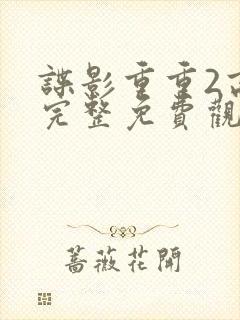 諜影重重2
完整免費觀
薔薇花開